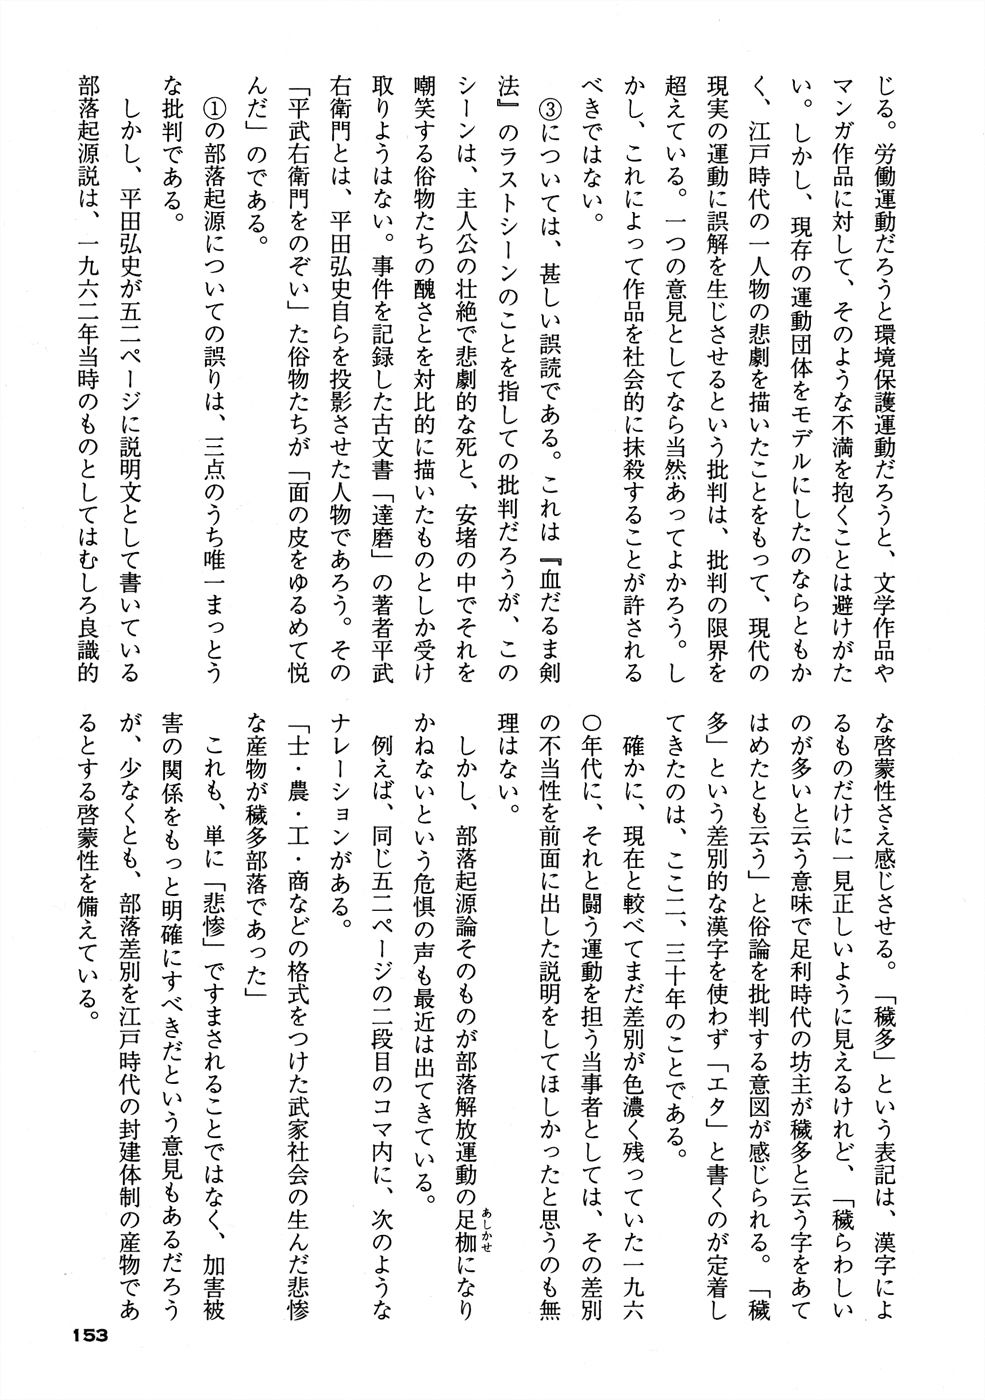 じる。労働運動だろうと環境保護運動だろうと、文学作品や
マンガ作品に対して、そのような不満を抱くことは避けがた
い。しかし、現存の運動団体をモデルにしたのならともか
く、江戸時代の一人物の悲劇を描いたことをもって、現代の
現実の運動に誤解を生じさせるという批判は、批判の限界を
超えている。一つの意見としてなら当然あってよかろう。し
かし、これによって作品を社会的に抹殺することが許される
べきではない。
③については、甚しい誤読である。これは『血だるま剣
法』のラストシーンのことを指しての批判だろうが、この
シーンは、主人公の壮絶で悲劇的な死と、安堵の中でそれを
嘲笑する俗物たちの醜さとを対比的に描いたものとしか受け
取りようはない。事件を記録した古文書「達磨」の著者平武
右衛門とは、平田弘史自らを投影させた人物であろう。その
「平武右衛門をのぞい」た俗物たちが「面の皮をゆるめて悦
んだ」のである。
①の部落起源についての誤りは、三点のうち唯一まっとう
な批判である。
しかし、平田弘史が五二ページに説明文として書いている
部落起源説は、一九六二年当時のものとしてはむしろ良識的
な啓蒙性さえ感じさせる。「穢多」という表記は、漢字によ
るものだけに一見正しいように見えるけれど、「穢らわしい
のが多いと云う意味で足利時代の坊主が穢多と云う字をあて
はめたとも云う」と俗論を批判する意図が感じられる。「穢
多」という差別的な漢字を使わず「エタ」と書くのが定着し
てきたのは、ここ二、三十年のことである。
確かに、現在と較べてまだ差別が色濃く残っていた一九六
〇年代に、それと闘う運動を担う当事者としては、その差別
の不当性を前面に出した説明をしてほしかったと思うのも無
理はない。
しかし、部落起源論そのものが部落解放運動の足枷になり
あしかせ
かねないという危惧の声も最近は出てきている。
例えば、同じ五二ページの二段目のコマ内に、次のような
ナレーションがある。
「士・農・工・商などの格式をつけた武家社会の生んだ悲惨
な産物が穢多部落であった」
これも、単に「悲惨」ですまされることではなく、加害被
害の関係をもっと明確にすべきだという意見もあるだろう
が、少なくとも、部落差別を江戸時代の封建体制の産物であ
るとする啓蒙性を備えている。
153